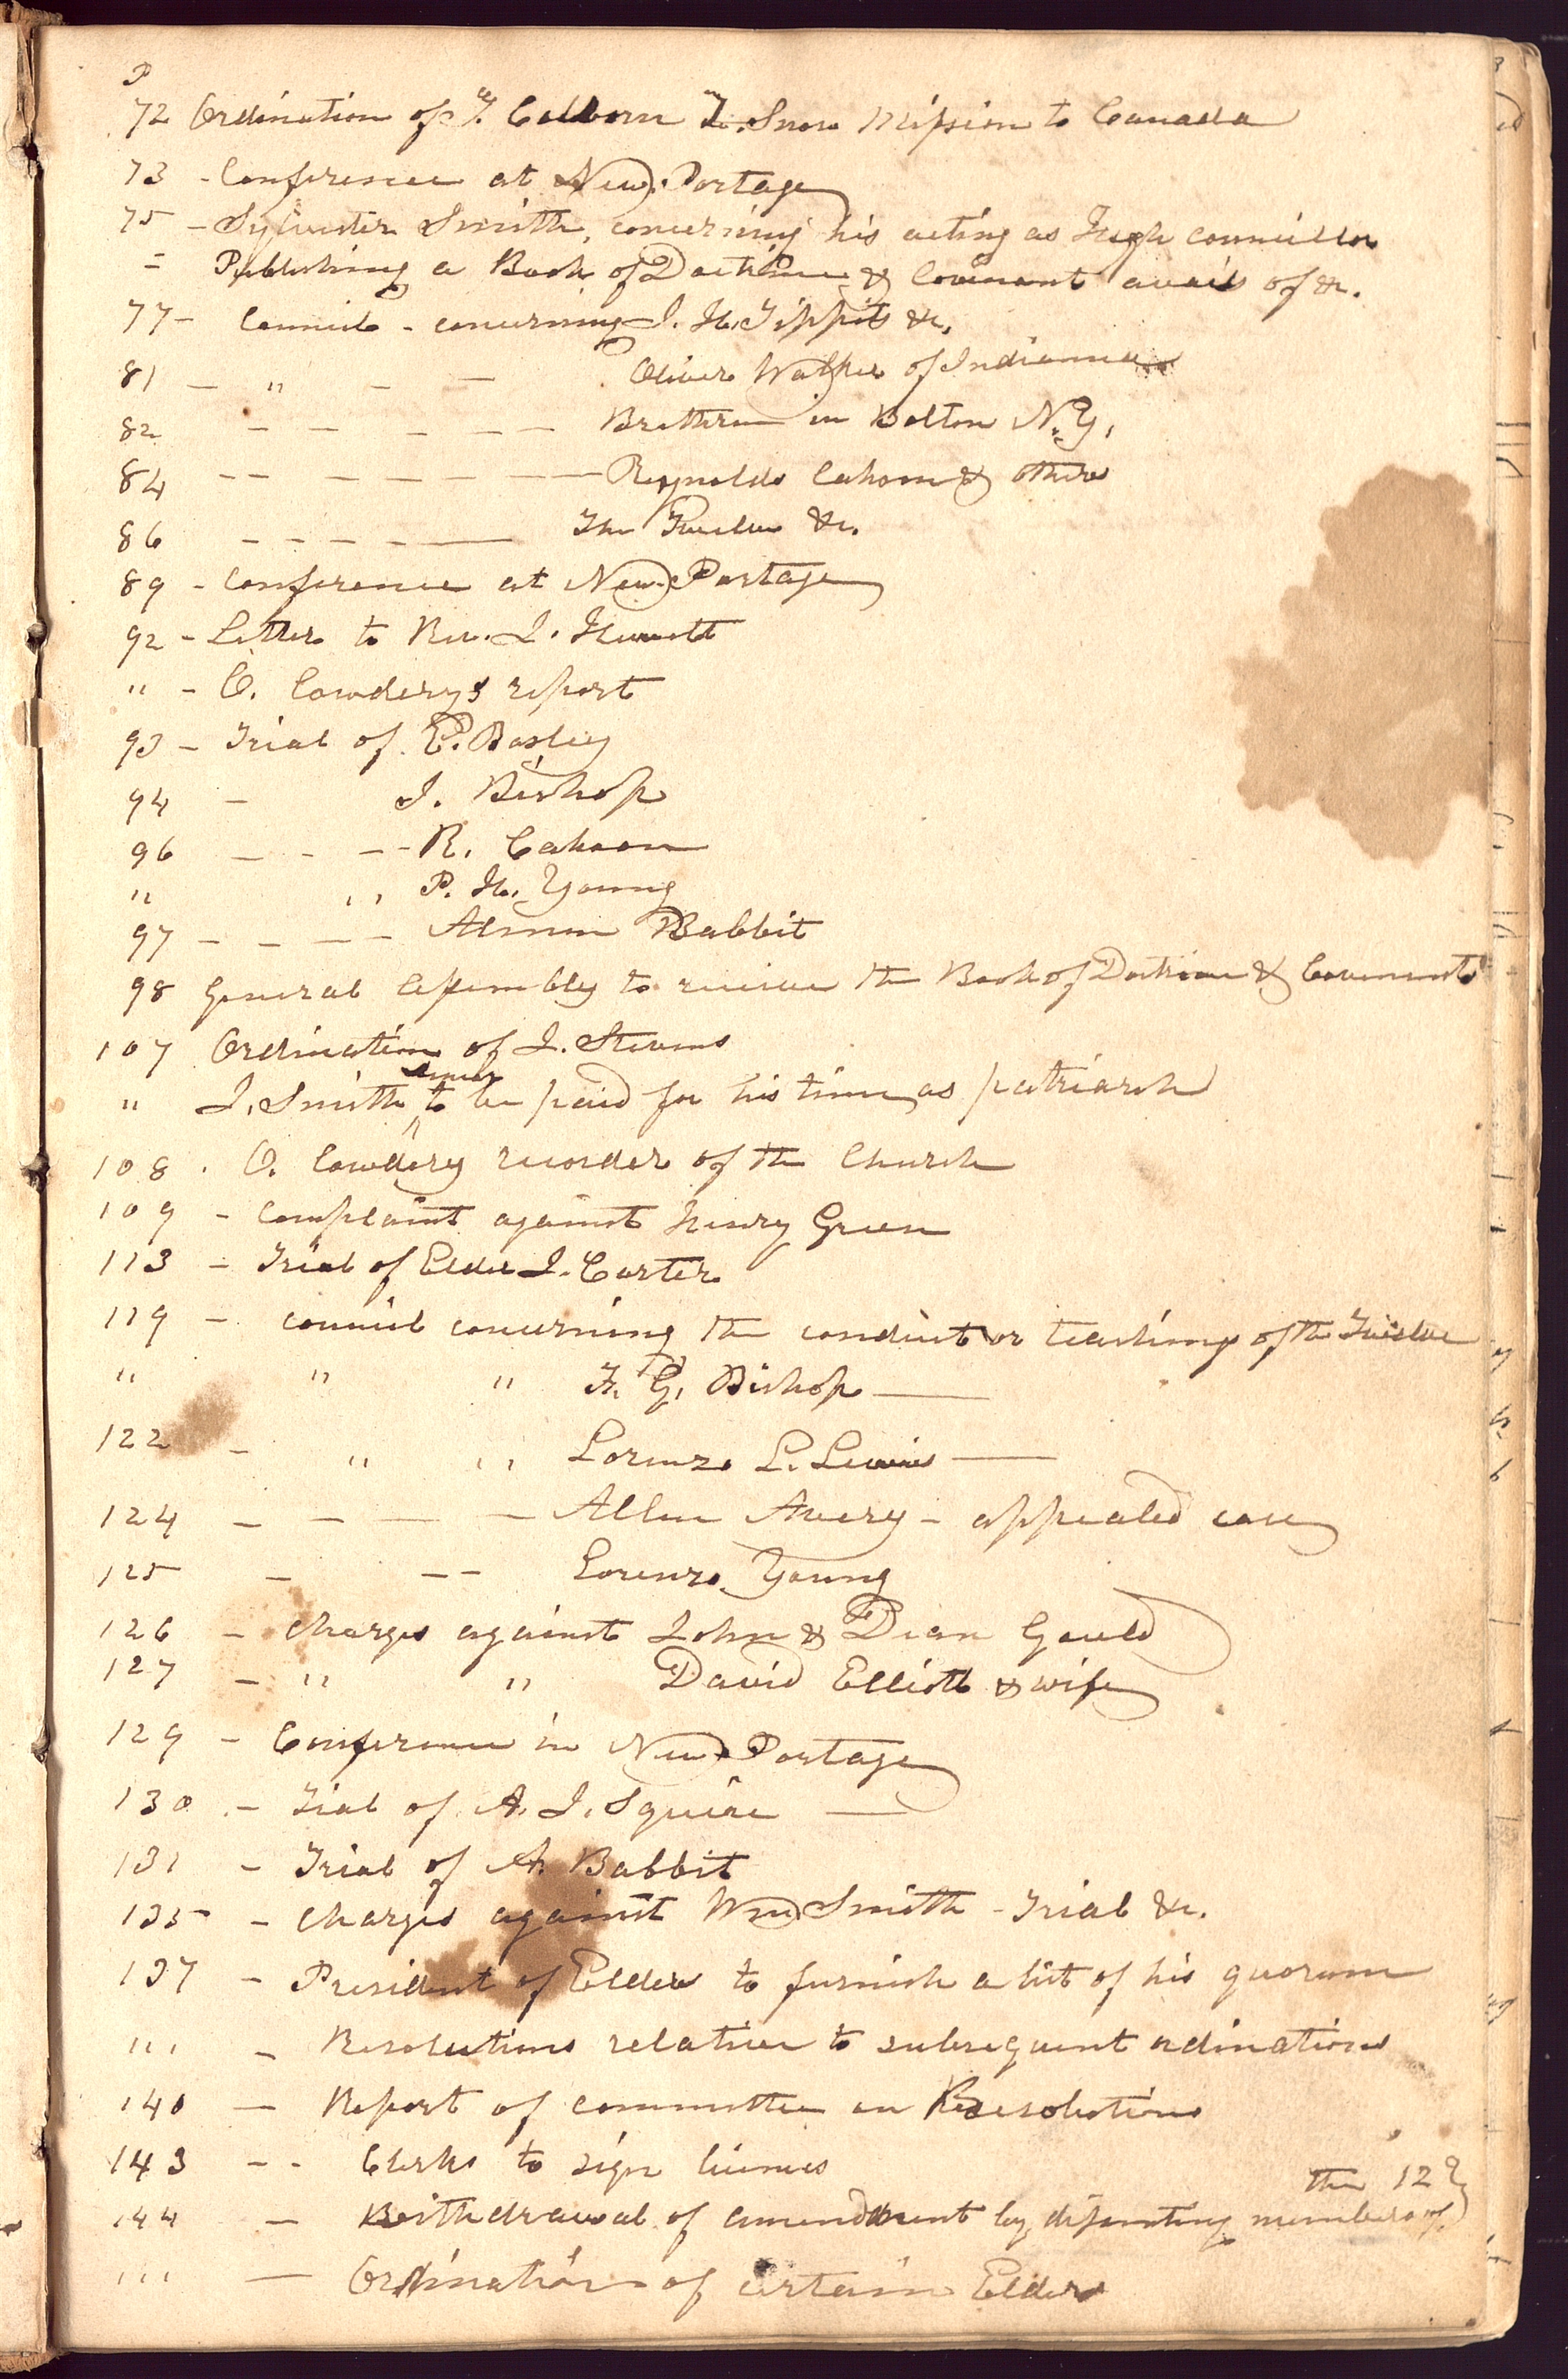 P
72 Ordination of T. Colborn Z. Snow Mission to Canada
73 - Conference at New-Portage
75 - Sylvester Smith, concerning his acting as High councillor
= Publishing a Book of Doctrine & Covenant avails of &c.
77 - Council - concerning J. H. Tippits &c.
81 — " — — Oliver Walker of Indiana
82 — — — — — Brethren in Bolton N.Y.
84 — — — — — — — Reynolds Cahoon & others
86 — — — — — The Twelve &c.
89 - Conference at New-Portage
92 - Letter to Rev. J. Hewett
" - O. Cowderys report
93 - Trial of E. Bosley
94 - J. Bishop
96 — - — - R. Cahoon
" " P. H. Young
97 — — — — Almon Babbit
98 General Assembly to receive the Book of Doctrine & Covenants
107 Ordination of J. Stevens
senior
" J. Smith, ^ to be paid for his time, as patriarch
108 . O. Cowdery recorder of the Church
109 - Complaint against Henry Green
113 - Trial of Elder J. Carter
119 - Council concerning the conduct or teaching of the Twelve
" " " F. G. Bishop —
122 - " " Lorenzo L. Lewis —
124 — — — — Allen Avery - appealed case
125 — — — Lorenzo Young
126 - Charges against John & Dean Gould
127 - " " David Elliott & wife
129 - Conference in New-Portage
130 - Tial of A. J. Squire —
131 - Trial of A. Babbit
135 - Charges against Wm Smith - Trial &c.
137 - President of Elders to furnish a list of his quorum
" - Resolutions relative to subsequent ordinations
140 — Report of committee on Resolutions
143 - - Clerks to sign licenses
the 12}
144 — Withdrawal of amendment by dissenting members of
" — Ordination of certain Elders